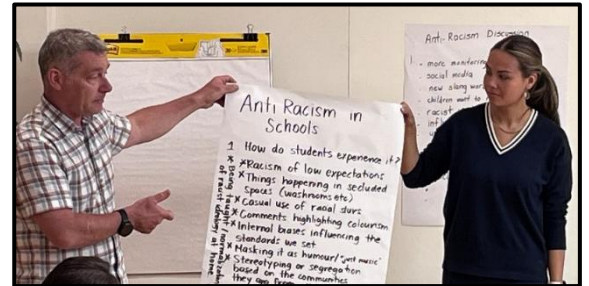 Anti Racism in
Schools
1 How do students experience it?
*Racism of low expectations
*Things happening in secluded
Spaces (washrooms etc)
*Casual use of racial slurs
*Comments highlighting colourism
*Internal biases influencing the
standards we set
*Masking it as humour/"just music"
*Stereotyping or segregation
based on the communities
they are from
*Being taught / normalization
of racist ideology at home
Anti-Racism Discussion
1.
- more monitoring
- social media
new slang wor
- children want to
- racist
- infl